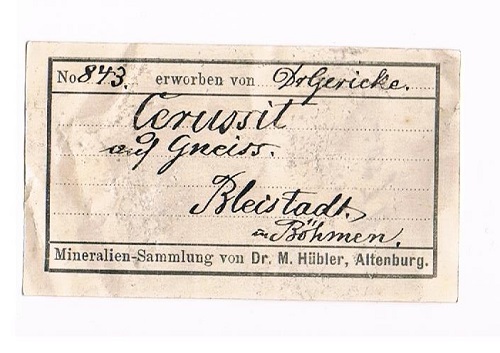 No 843. erworben von Dr Gericke.
Cerussit
auf Gneiss.
Bleistadt.
in Böhmen.
Mineralien-Sammlung von Dr. M. Hübler, Altenburg.